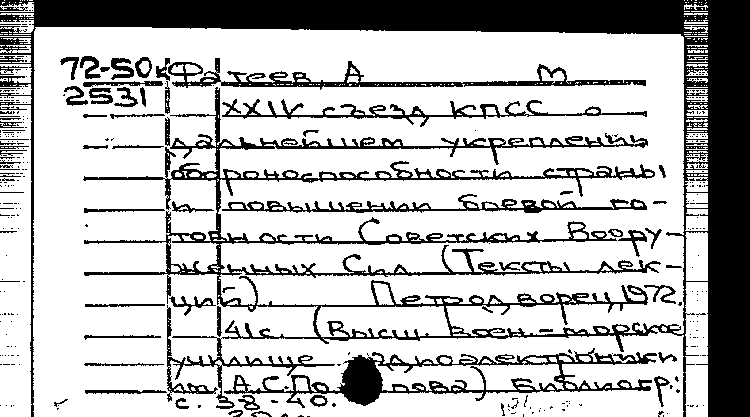 72-50к Фатеев, А М
2531
XXIV съезд КПСС о
дальнейшем укреплении
обороноспособности страны
и повышении боевой го-
товности Советских Воору-
женных Сил (Тексты лек-
ций). Петродворец, 1972.
41с. (Высш. воен-морское
училище радиоэлектроники
им. А.С. Попова) Библиогр.:
с. 38-40.